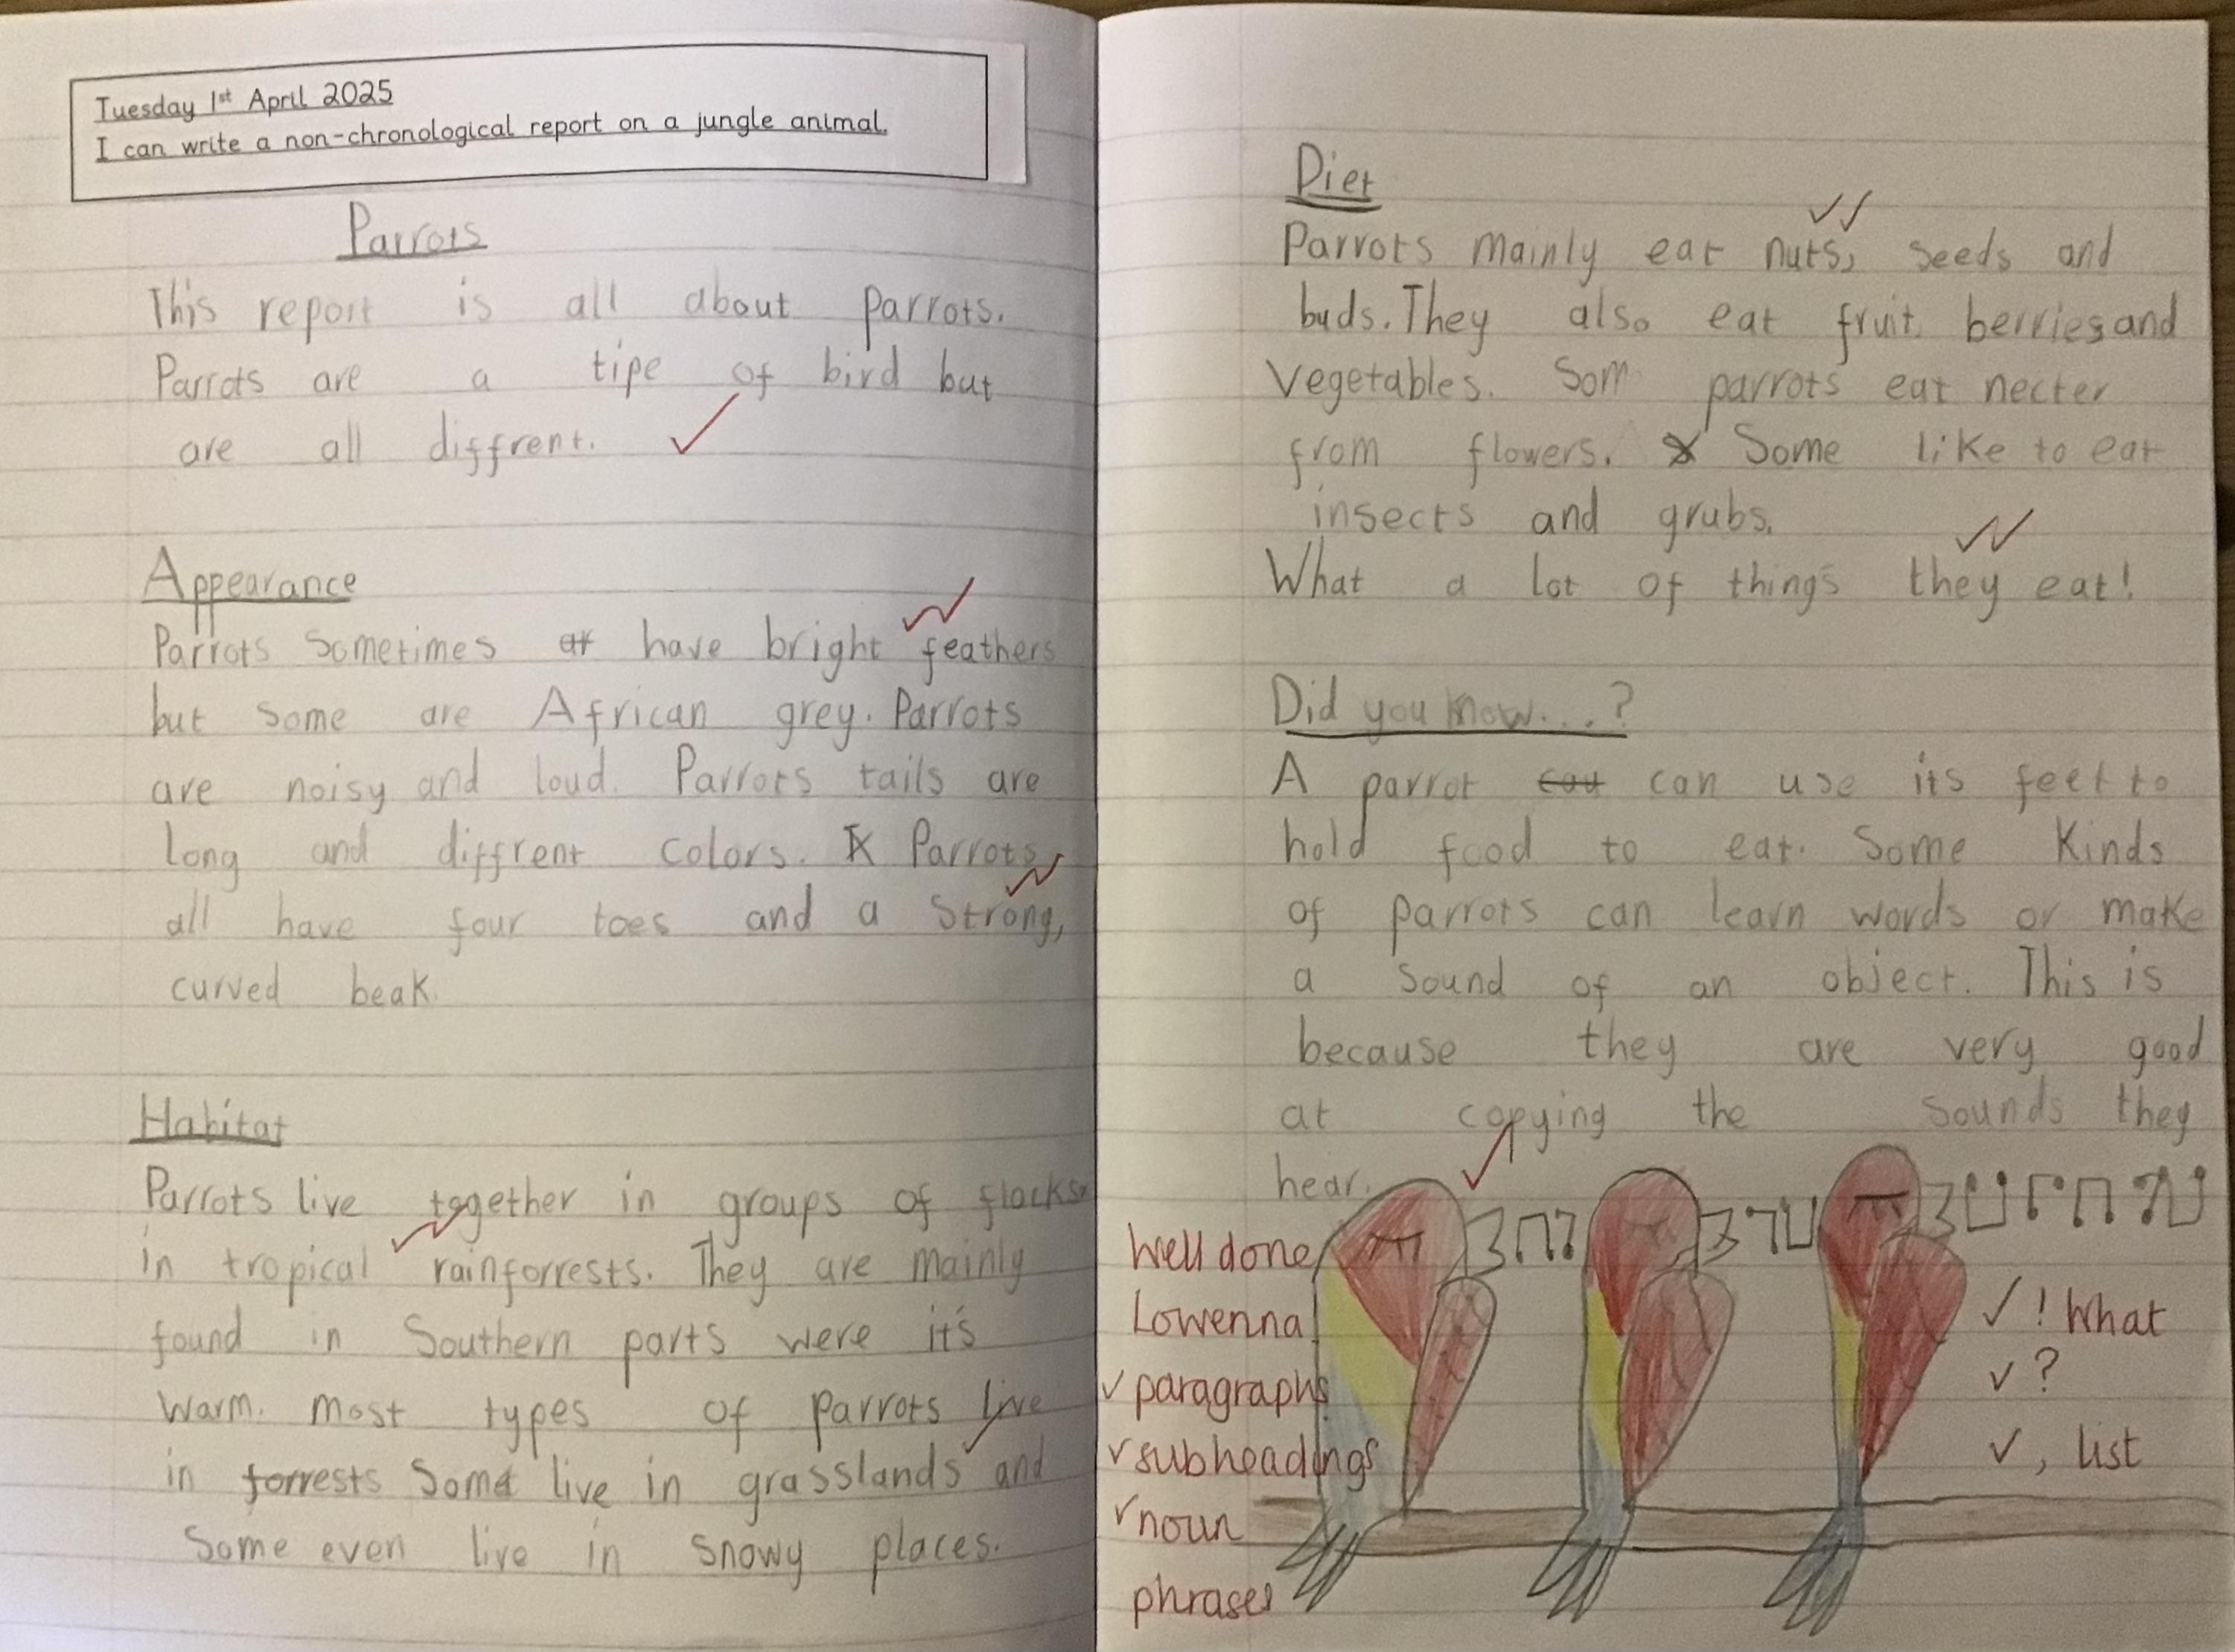 Tuesday 1st April 2025
I can write a non-chronological report on a jungle animal.
Parrots
This report is all about parrots.
Parrots are a tipe of bird but
are all diffrent.
Appearance
Parrots sometimes have bright feathers
but some are African grey. Parrots
are noisy and loud. Parrots tails are
long and diffrent colors. Parrots
all have four toes and a strong,
curved beak.
Habitat
Parrots live together in groups of flocks
in tropical rainforrests. They are mainly
found in Southern parts were it's
warm. most types of parrots live
in forrests Some live in grasslands and
Some even live in snowy places.
Diet
Parrots mainly eat nuts, seeds and
buds. They also eat fruit, berries and
vegetables. Som parrots eat necter
from flowers. Some like to eat
insects and grubs.
What a lot of things they eat!
Did you know....?
A parrot can use its feet to
hold food to eat. Some kinds
of parrots can learn words or make
a sound of an object. This is
because they are very good
at copying the sounds they
hear.
Well done
Lowenna
✓ paragraphs
✓ subheadings
✓ noun
phrases
✓ ! What
✓ ?
✓ , list